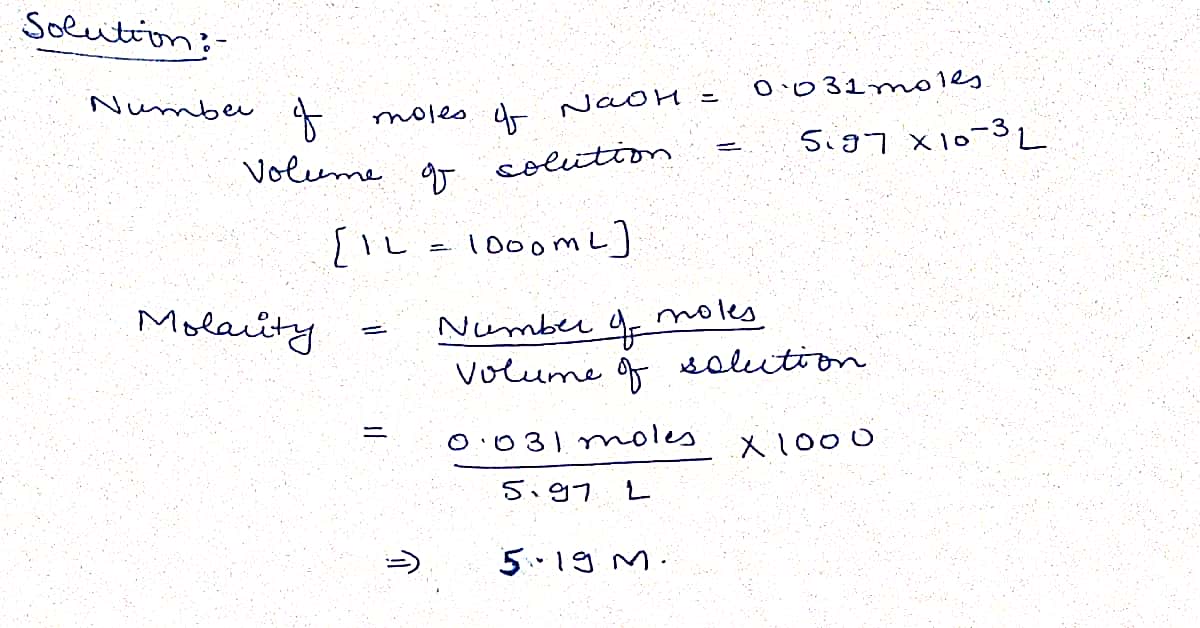 Solution:-
Number of moles of NaOH = 0.031 moles
Volume of solution = 5.97 × 10⁻³ L
[1L = 1000 mL]
Molarity = Number of moles
Volume of solution
= 0.031 moles × 1000
5.97 L
⇒ 5.19 M.